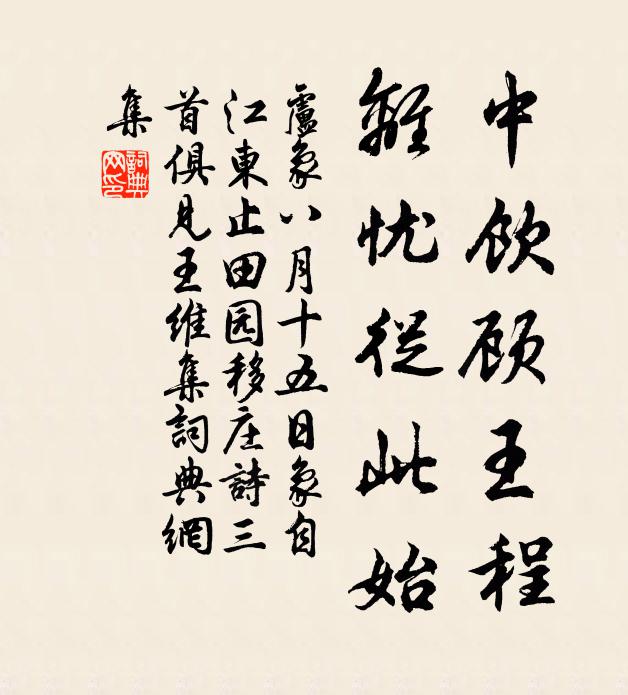 中饮顾王程
離忧從此始
盧象八月十五日象自
江東止田园移庄詩三
首俱见王维集詞典網
集
詞典网印